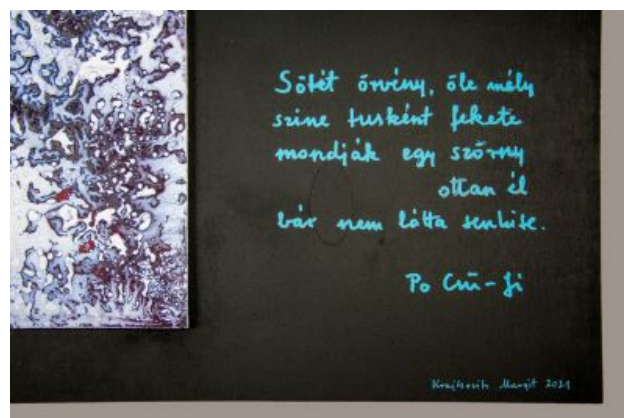 Sötét örvény, öle mély
szine tusként fekete
mondják egy szörny
ottan él
bár nem látta senkise.
Po Csü-Ji
Margit 2021